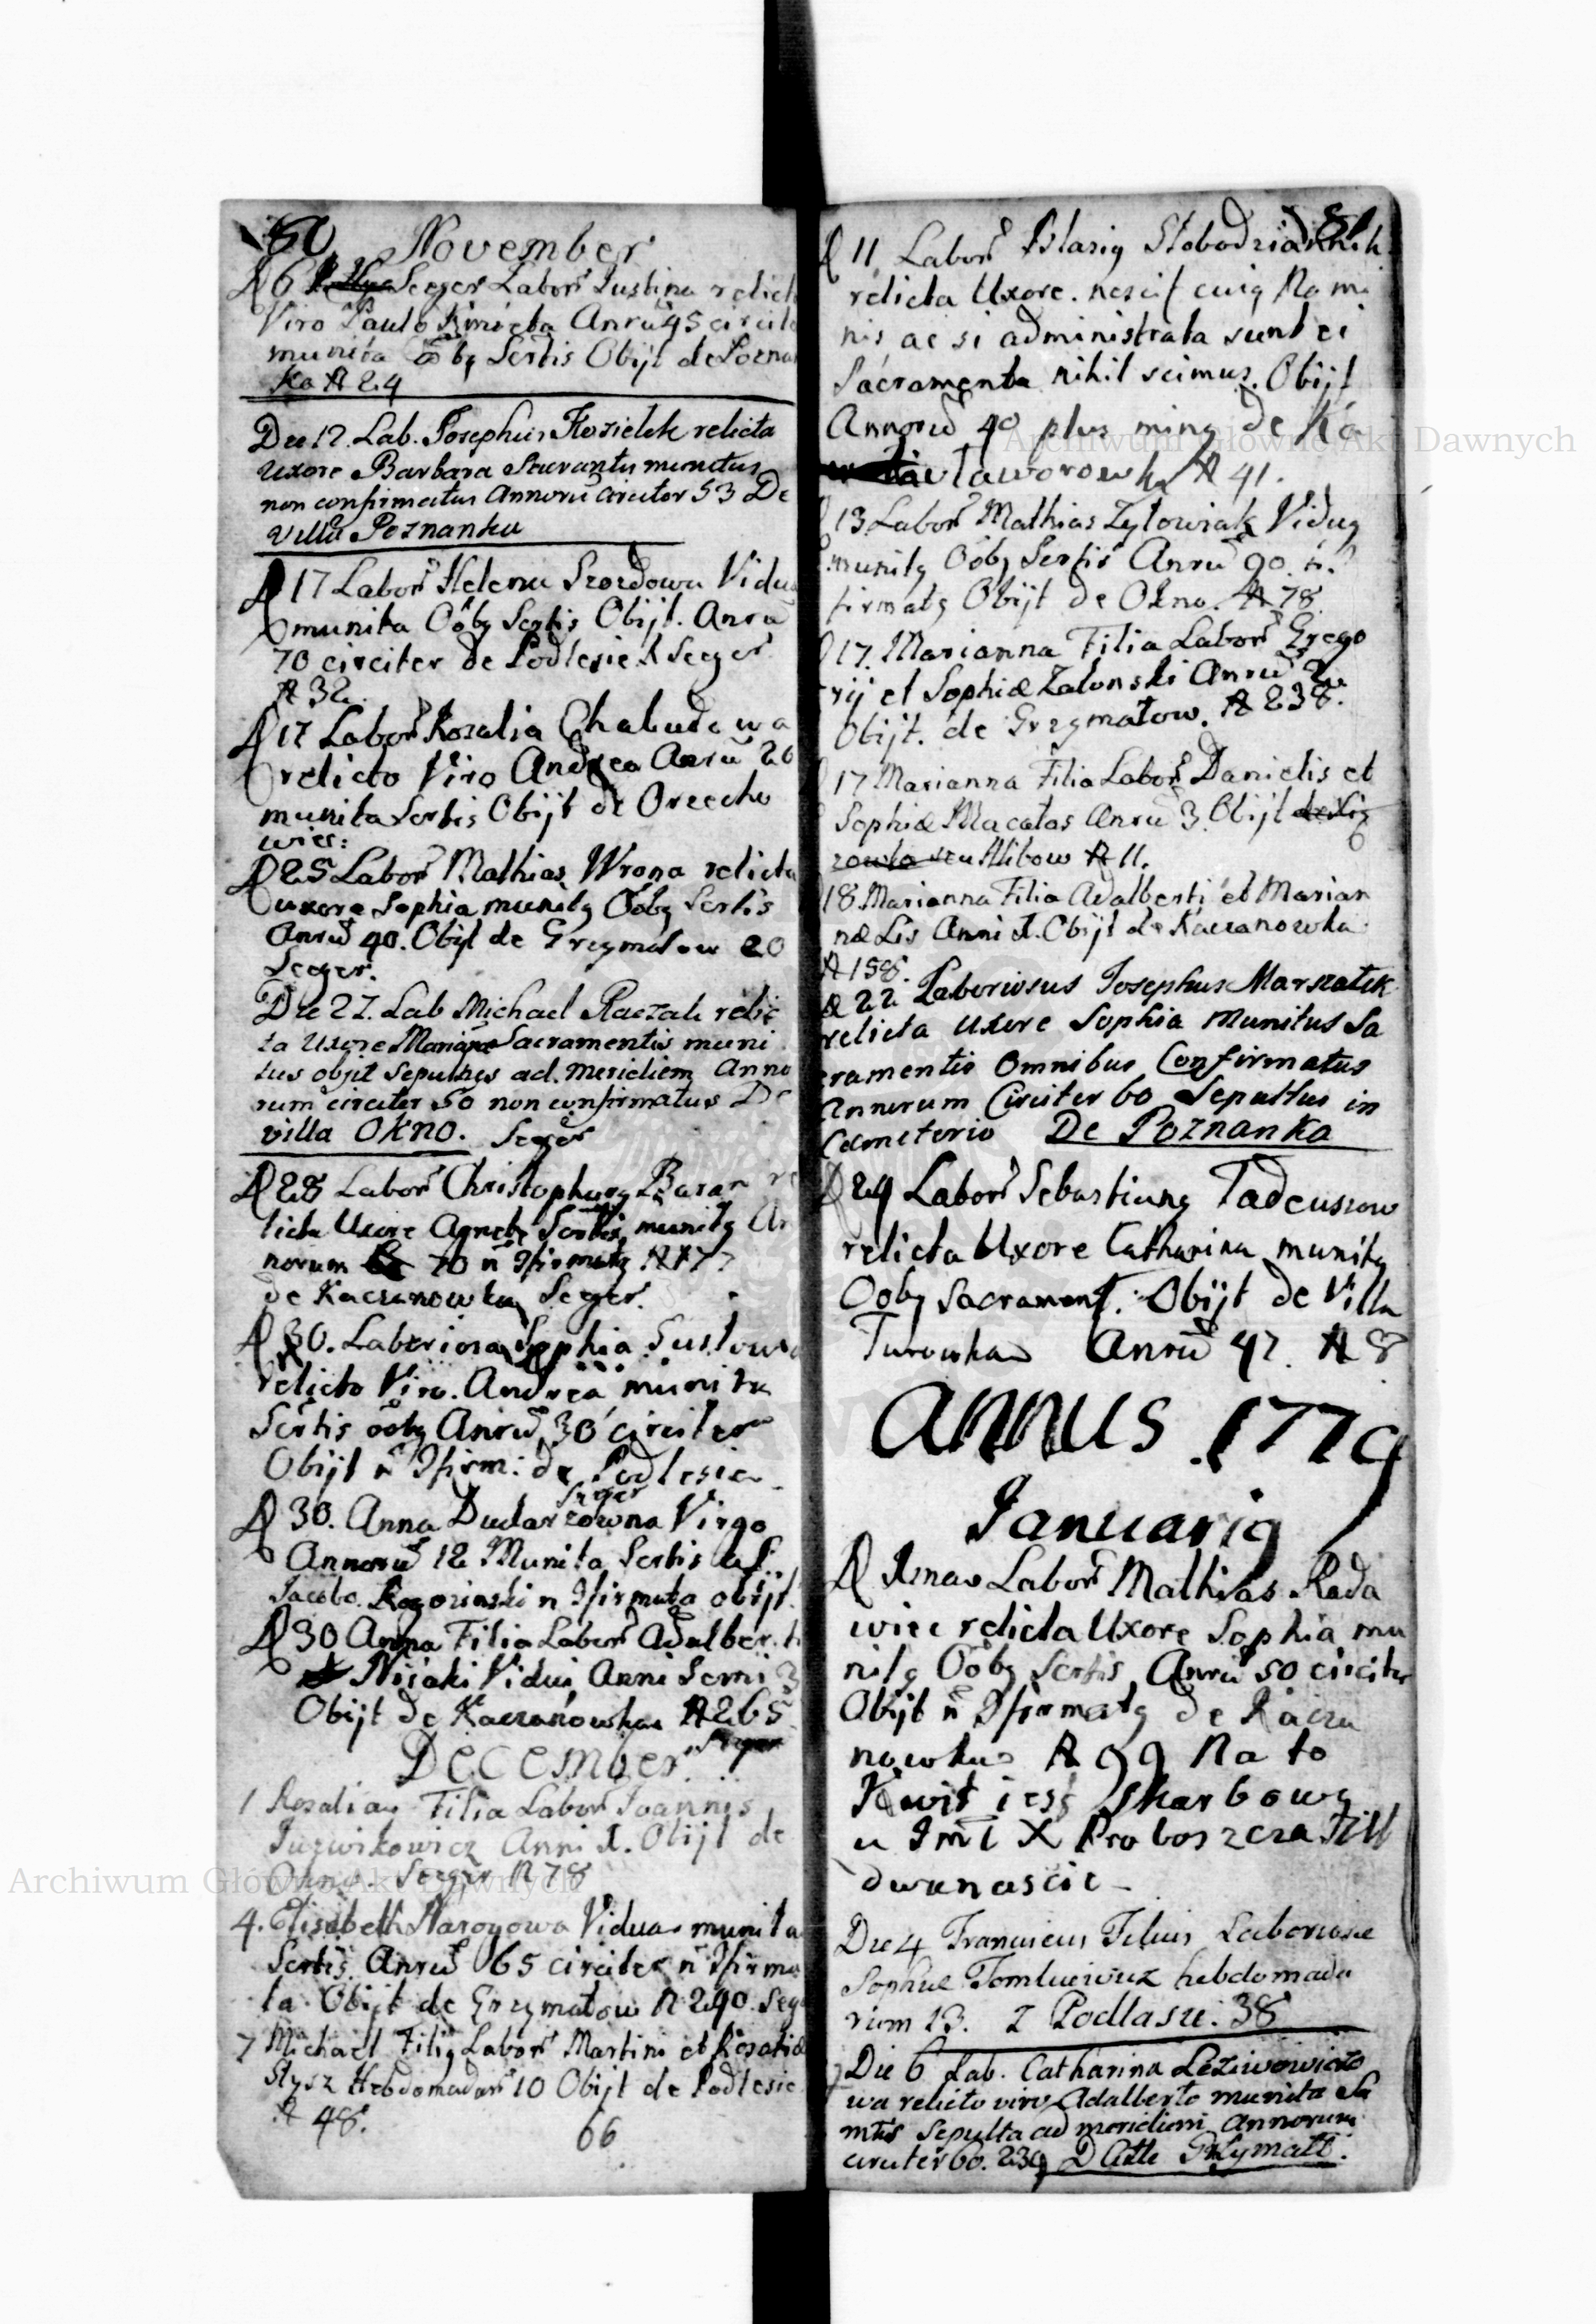 60
November
6 Seeger Labors Iustina relict
Viro Paulo Kmieeta Anrū 45 circite
munita Ooby Sertis Obijt de Pozna
ka N 24
Die 12. Lab. Josephus Kozielek relicta
Uxore Barbara Sacrantis munitus
non confirmatus Annorū circiter 53 De
villa Poznanka
17 Labors Helena Szozdowa Vidu
munita Ooby Sertis Obijt. Anrū
70 circiter de Podlesie Seeger
N 32.
17 Labors Rozalia Chaludowa
relicto Viro Andrea Anrū 26
munita Sertis Obijt de Orzecho
wiec:
25 Labors Mathias Wrona relicta
uxore Sophia munitg Ooby Sertis
Anrū 40. Obijt de Grzymałow 20
Seeger.
Die 27. Lab Michael Raczak relic
ta Uxore Sacramentis muni
tus objit Sepultus ad. meridiem Anno
rum circiter 50 non confirmatus De
villa OKNO. Seger
28 Labors Christophorg Baran re
licta Uxore Agnete Sertis munitg An
norum 70 n 
de Kaczanowka Seeger.
30. Laboriosa Sophia Guslowa
relicto Viro. Andrea munita
Sertis ooby Anrū 30 circiter
Obijt n de Podlesie
Seger
30. Anna Dudarzowna Virgo
Annorū 12 Munita Sertis
Jacobo. n obijt.
30 Anna Filia Labors Adalberti
Nijaki Vidui Anni Semi 3
Obijt de Kaczanowka N 265
Seger
December
1 Rozalia Filia Labors Joannis
Juzwikowicz Anni I. Obijt de
Okno. Seeger N 78
4. Elisabeth Naroyowa Vidua munita
Sertis Anrū 65 circiter n
ta Obijt de Grzymałow N 290. Seg
7 Michael Filig Labors Martini et Rosaliæ
Stysz Hebdomadarū 10 Obijt de Podlesie
N 48.
66
81
11 Labors Slobodzianik
relicta Uxore. nescit cuig Nomi
nis ac si administrata sunt ei
Sacramenta nihil scimus. Obijt
Annorū 40 plus ming de Ka
laworowka N 41.
13 Labors Mathias Zylowiak Vidug
munitg Ooby Sertis Anrū 90. n.
firmatg Obijt de Okno. N 78.
17. Marianna Filia Labors Grego
rij et Sophiæ Zalonski Anrū 2
Obijt. de Grzymałow. N 238.
17 Marianna Filia Labors Danielis et
Sophiæ Macałas Anrū 3. Obijt
seu Alibow N 11.
18. Marianna Filia Adalberti et Marian
næ Lis Anni I. Obijt de Kaczanowka
N 158.
22 Laboriosus Josephus Marszałek
relicta Uxore Sophia Munitus Sa
cramentis Omnibus Confirmatus
Annorum Circiter 60 Sepultus in
Cæmeterio De Poznanka
24 Labors Sebastiang Tadeuszow
relicta Uxore Catharina munitg
Ooby Sacrament. Obijt de Villa
Turowka Anrū 47. N 8
ANNUS 1779
Januarig
Labors Mathias Rada
wiec relicta Uxore Sophia mu
nitg Ooby Sertis Anrū 50 circiter
Obijt n de Kacza
nowka N 99 Na to
Kwit iest Skarbowy
u X Proboszcza
dwanascie
Die 4 Franciscus Filius Laboriosæ
Sophiæ Tomkiewicz hebdomada
rum 13. Z Podlasze. 38
Die 6 Lab. Catharina
wa relicto viro Adalberto munita Sa
mtis Sepulta ad meridiem Annorum
circiter 60. 239 Grzymałł.
Archiwum Główne Akt Dawnych
Archiwum Główne Akt Dawnych